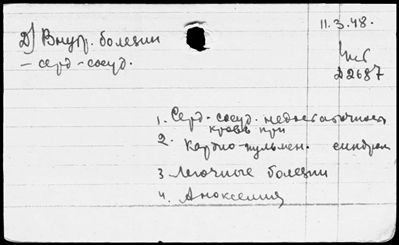 11.3.48.
Д) Внутр. болезни
– серд-сосуд.
Д2687
1. Серд-сосуд. недостаточность
кровь при
2. Кардио-пульмон. синдром
3 Легочные болезни
4. Аноксемия